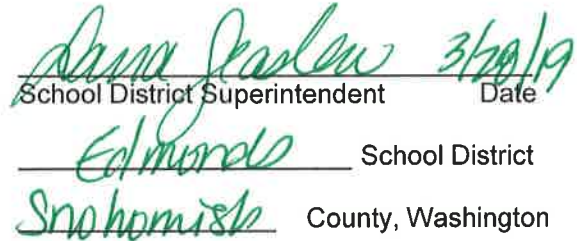 Dana Geaslen 3/28/19
School District Superintendent Date
Edmonds School District
Snohomish County, Washington